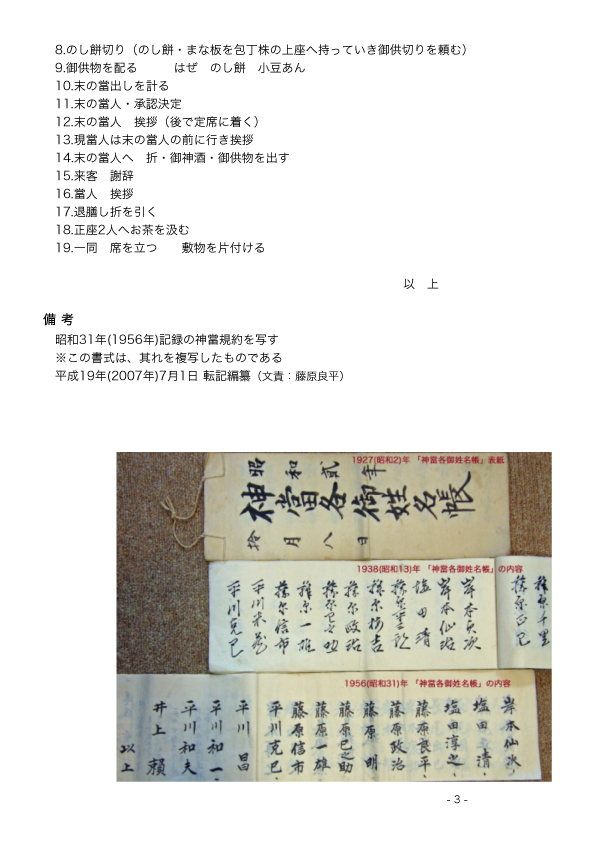 8.のし餅切り（のし餅・まな板を包丁株の上座へ持っていき御供切りを頼む）
9.御供物を配る　　　はぜ　のし餅　小豆あん
10.末の當出しを計る
11.末の當人・承認決定
12.末の當人　挨拶（後で定席に着く）
13.現當人は末の當人の前に行き挨拶
14.末の當人へ　折・御神酒・御供物を出す
15.来客　謝辞
16.當人　挨拶
17.退膳し折を引く
18.正座2人へお茶を汲む
19.一同　席を立つ　　敷物を片付ける
以　上
備 考
昭和31年(1956年)記録の神當規約を写す
※この書式は、其れを複写したものである
平成19年(2007年)7月1日 転記編纂（文責：藤原良平）
1927(昭和2)年 「神當各御姓名帳」表紙
昭和貳年
神當各御姓名帳
拾月八日
1938(昭和13)年 「神當各御姓名帳」の内容
藤原千里
藤原正巳
岸本兵次
岸本仙治
塩田清
藤原政治
藤原巳之助
藤原一雄
藤原信市
平川克巳
1956(昭和31)年 「神當各御姓名帳」の内容
岸本仙次
塩田清
塩田淳之
藤原良平
藤原政治
藤原明
藤原巳之助
藤原一雄
藤原信市
平川克巳
平川昌
平川和一
平川和夫
井上頼
以上
- 3 -